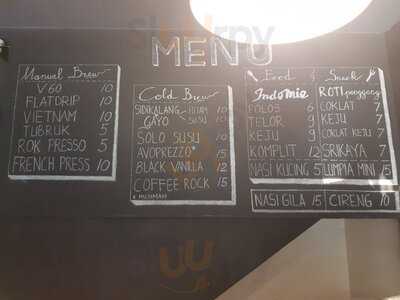 MENU
Manual Brew
V60 10
FLATDRIP 10
VIETNAM 10
TUBRUK 5
ROK PRESSO 5
FRENCH PRESS 10
Cold Brew
SIDIKALANG HITAM 10
GAYO SUSU 10
SOLO SUSU 10
AVOPREZZO* 15
BLACK VANILLA 12
COFFEE ROCK 15
Food & Snack
Indomie
POLOS 6
TELOR 9
KEJU 9
KOMPLIT 12
NASI KUCING 5
ROTI panggang
COKLAT 7
KEJU 7
COKLAT KEJU 7
SRIKAYA 7
LUMPIA MINI 15
NASI GILA 15
CIRENG 10